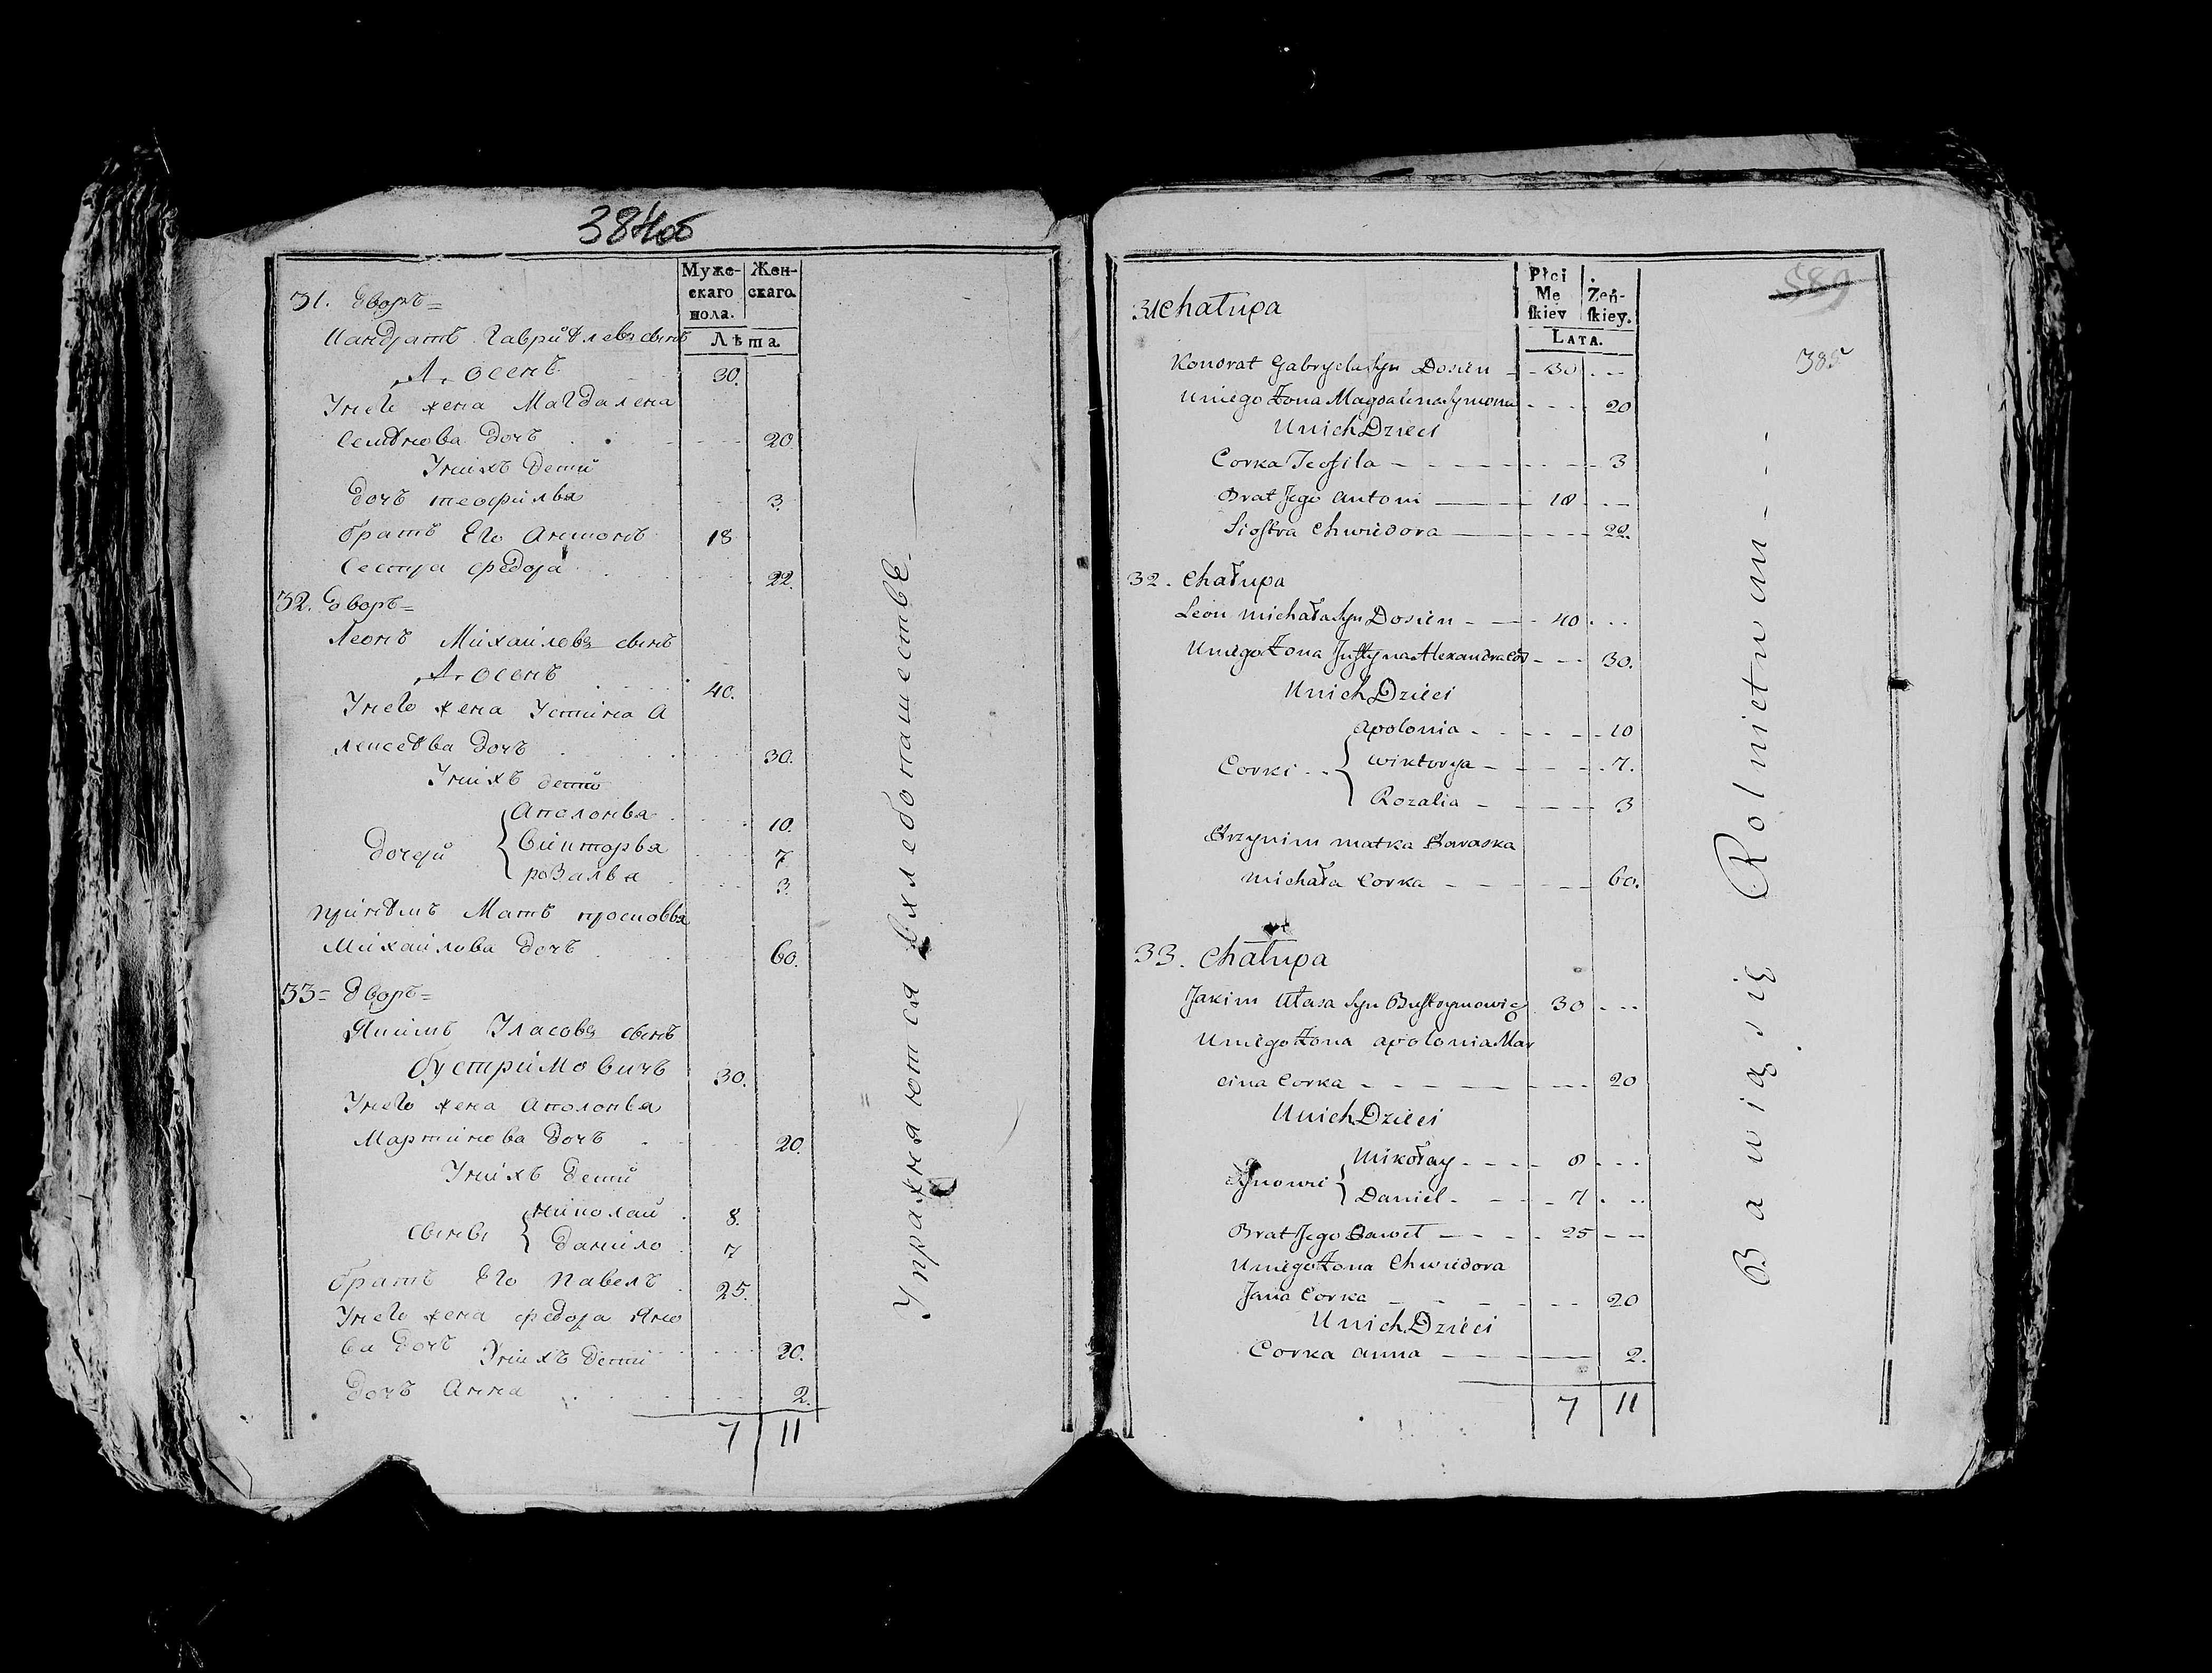 384об
Муже-
скаго
пола.
Жен-
скаго.
Лѣта
31. Дворъ=
Кандратъ Гаврiилевъ сынъ
Досень 30.
У него жена Магдалена
Семѣнова дочъ 20.
У нихъ дети
дочъ теофилья 3.
братъ Его Антонъ 18
Сестра федора 22.
32. Дворъ=
Леонъ Михайлевъ сынъ
Досень 40.
У него жена Устина А
лексѣева дочъ 30.
У нихъ дети
Аполонья 10.
дочери { Викторья 7
розалья 3.
при нѣмъ Мать просковья
Михайлова дочъ 60.
33= дворъ=
Якимъ Уласовъ сынъ
бустримовичъ 30.
У него жена Аполонья
Мартинова дочъ 20.
У нихъ дети
николай 8.
сыны { данило 7
братъ Его павелъ 25.
У него жена федора Яно
ва дочъ 20.
У нихъ дети
дочъ Анна 2.
7 11
Упражняются в хлебопашестве.
Płci
Mę
ſkiey
Żeń-
ſkiey.
LATA.
589
385
31 Chałupa
Kondrat Gabryela Syn Dosien 30
U niego Żona Magdalena Symona 20
U nich Dzieci
Corka Teofila 3
Brat Jego Antoni 18
Siostra Chwiedora 22.
32. Chałupa
Leon Michała Syn Dosien 40
U niego Żona Justyna Alexandra Cór 30.
U nich Dzieci
Apolonia 10
Corki { Wiktorya 7.
Rozalia 3
Przy nim matka Paraska
Michała Corka 60.
33. Chałupa
Jakim Ułasa Syn Bustrymowicz 30
U niego Żona Apolonia Mar
cina Corka 20
U nich Dzieci
Mikołay 8
Synowie { Daniel 7
Brat Jego Paweł 25
U niego Żona Chwiedora
Jana Corka 20
U nich Dzieci
Corka Anna 2.
7 11
Bawią się Rolnictwem